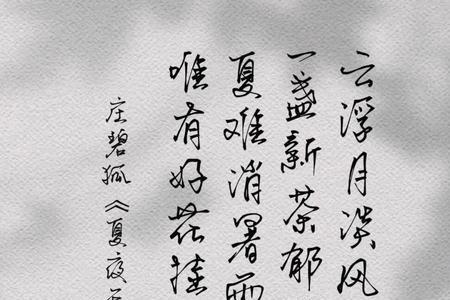 云浮月淡风
一盏新茶郁
夏难消暑西
唯有好花挂
庄碧孤《夏夜